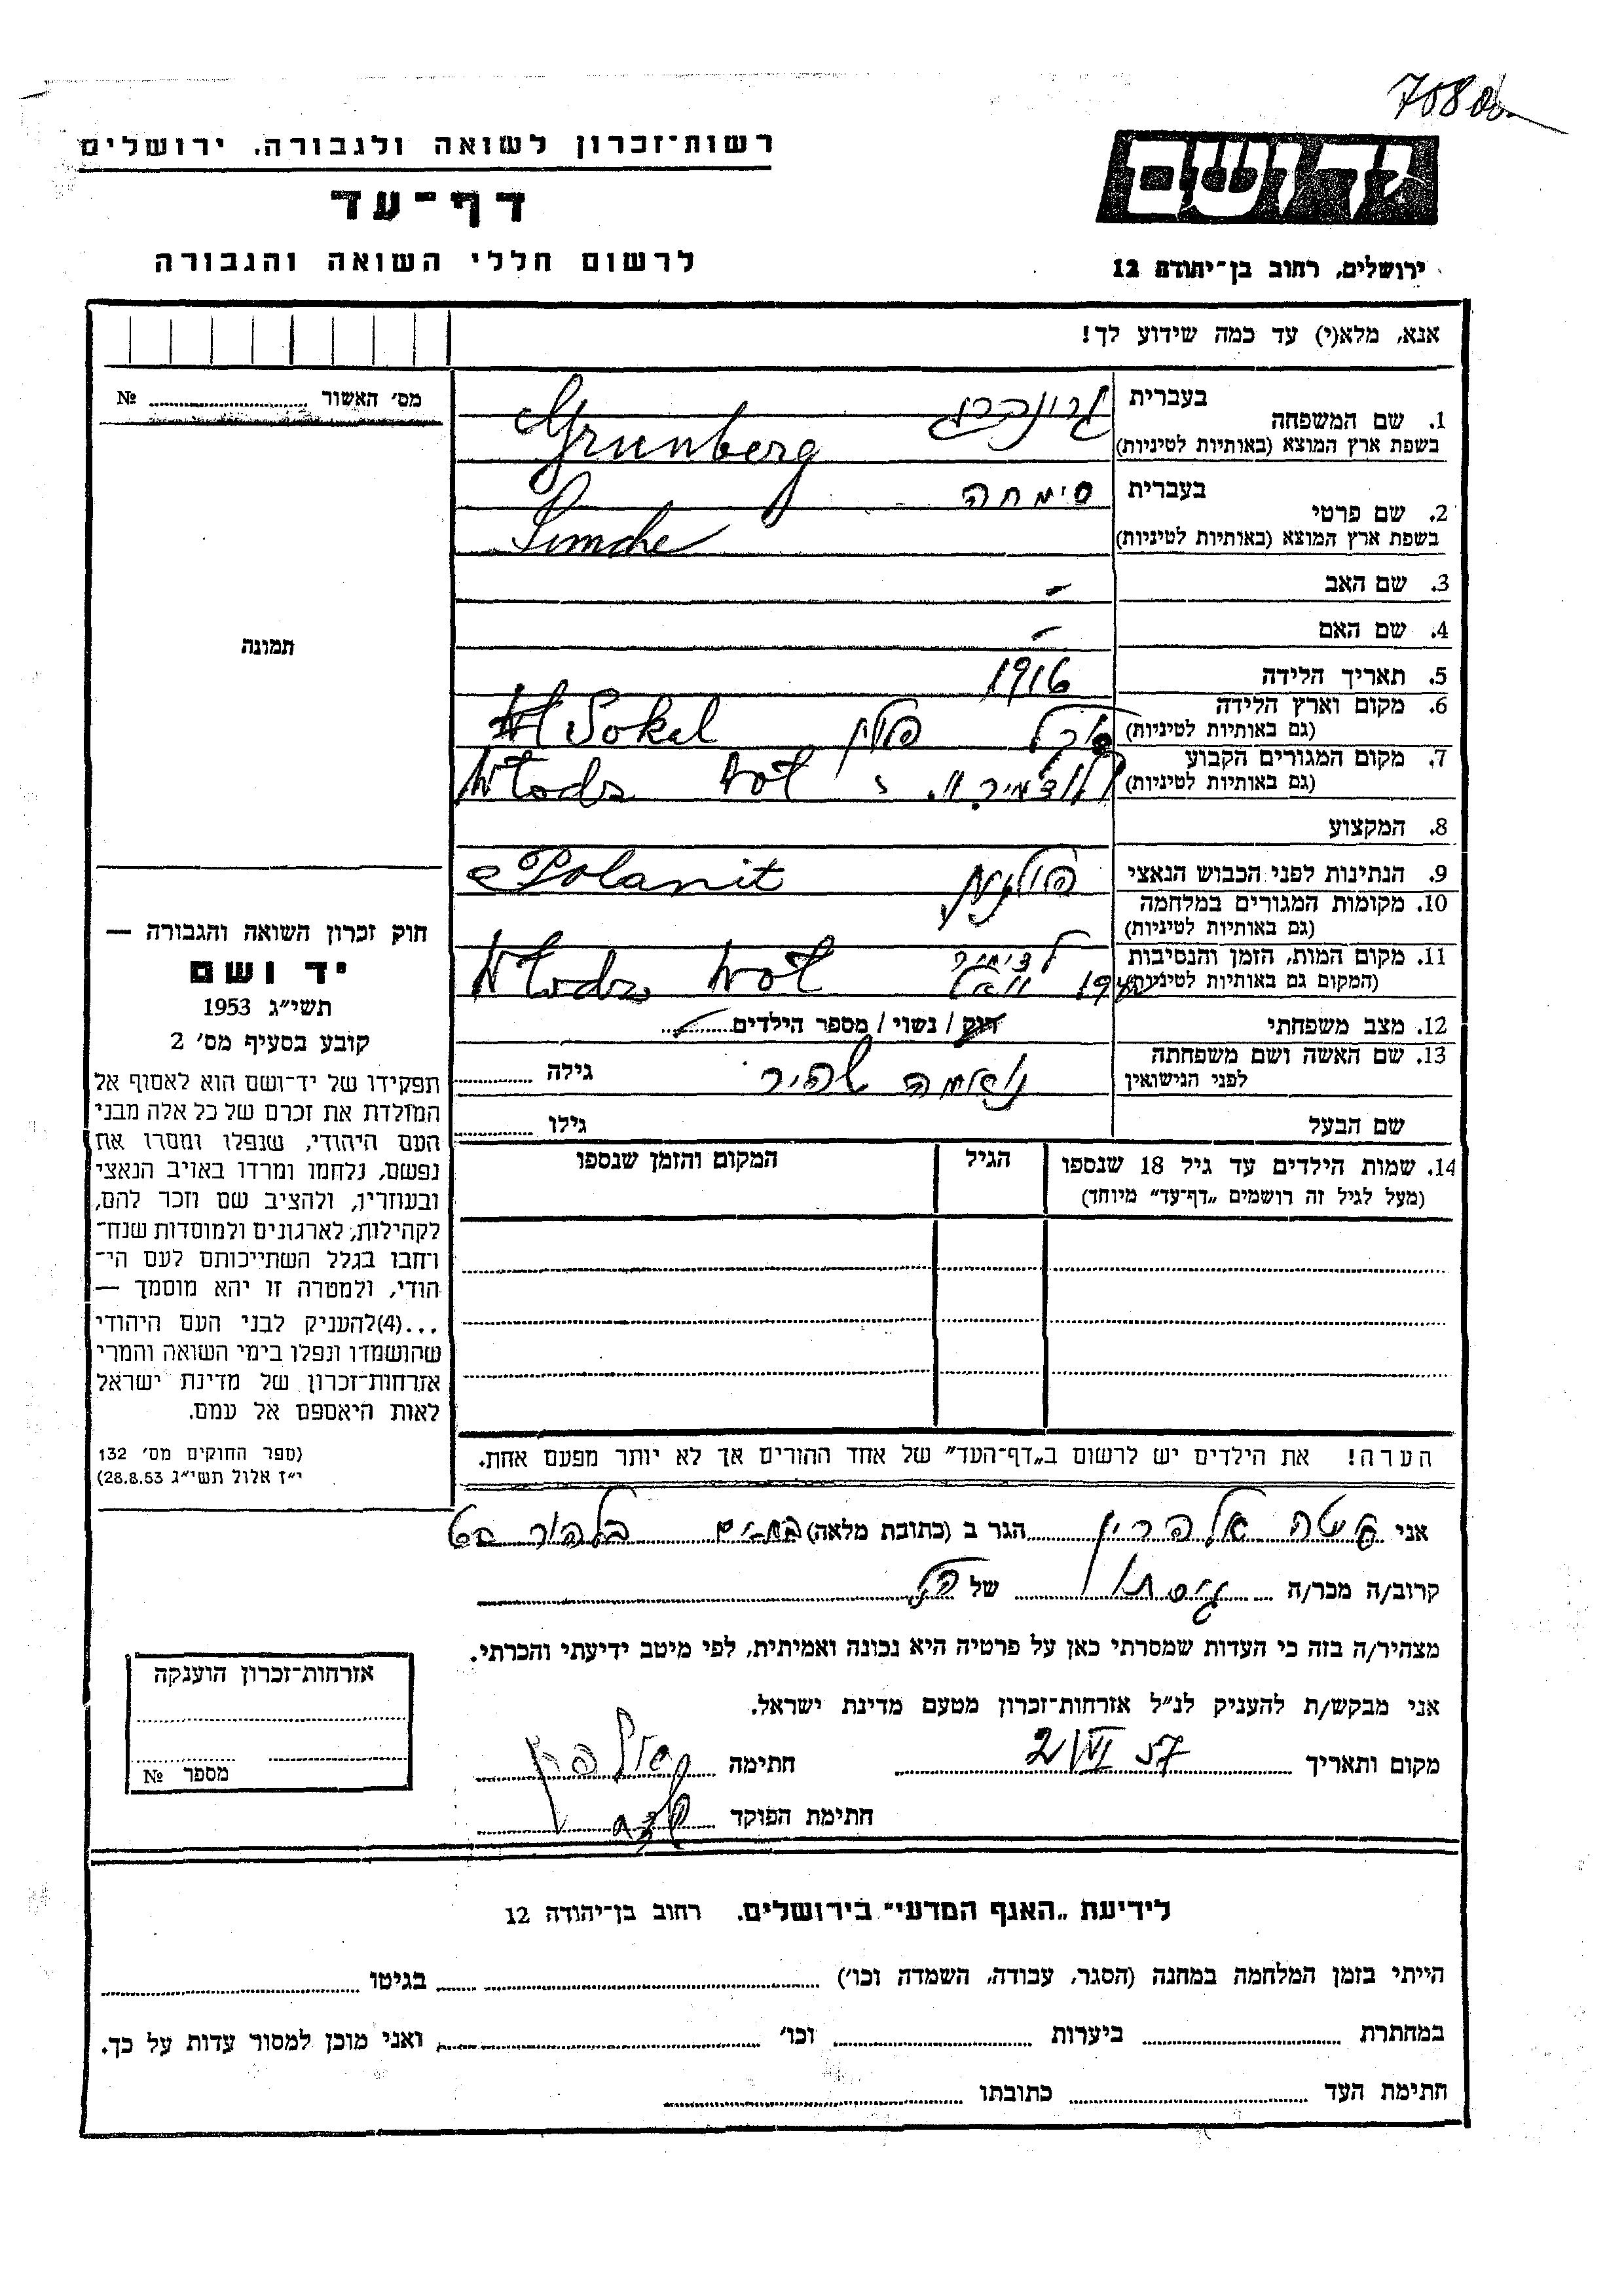 רשות־זכרון לשואה ולגבורה, ירושלים
דף־עד
לרשום חללי השואה והגבורה
יד ושם
ירושלים, רחוב בן־יהודה 12
אנא, מלא(י) עד כמה שידוע לך!
מס׳ האשור №
תמונה
1. שם המשפחה
בעברית גרינברג
בשפת ארץ המוצא (באותיות לטיניות) Grunberg
2. שם פרטי
בעברית סימחה
בשפת ארץ המוצא (באותיות לטיניות) Simche
3. שם האב -
4. שם האם -
5. תאריך הלידה 1916
6. מקום וארץ הלידה
(גם באותיות לטיניות) סוקל פולין Sokal
7. מקום המגורים הקבוע
(גם באותיות לטיניות) Wlodz Wol
8. המקצוע
9. הנתינות לפני הכבוש הנאצי פולנית Polanit
10. מקומות המגורים במלחמה
(גם באותיות לטיניות)
11. מקום המות, הזמן והנסיבות
(המקום גם באותיות לטיניות) Wlodz Wol
12. מצב משפחתי רוק / נשוי / מספר הילדים
13. שם האשה ושם משפחתה
לפני הנישואין נחמה גילה
שם הבעל גילו
14. שמות הילדים עד גיל 18 שנספו
(מעל לגיל זה רושמים „דף־עד״ מיוחד)
הגיל
המקום והזמן שנספו
הערה! את הילדים יש לרשום ב„דף־העד״ של אחד ההורים אך לא יותר מפעם אחת.
חוק זכרון השואה והגבורה —
יד ושם
תשי״ג 1953
קובע בסעיף מס׳ 2
תפקידו של יד־ושם הוא לאסוף אל
המולדת את זכרם של כל אלה מבני
העם היהודי, שנפלו ומסרו את
נפשם, נלחמו ומרדו באויב הנאצי
ובעוזריו, ולהציב שם וזכר להם,
לקהילות, לארגונים ולמוסדות שנח־
רחבו בגלל השתייכותם לעם הי־
הודי, ולמטרה זו יהא מוסמך —
...(4)להעניק לבני העם היהודי
שהושמדו ונפלו בימי השואה והמרי
אזרחות־זכרון של מדינת ישראל
לאות היאספם אל עמם.
(ספר החוקים מס׳ 132
י״ז אלול תשי״ג 28.8.53)
אני הגר ב (כתובת מלאה)
קרוב/ה מכר/ה גיסתו של הנ״ל
מצהיר/ה בזה כי העדות שמסרתי כאן על פרטיה היא נכונה ואמיתית, לפי מיטב ידיעתי והכרתי.
אני מבקש/ת להעניק לנ״ל אזרחות־זכרון מטעם מדינת ישראל.
מקום ותאריך חתימה
חתימת הפוקד
אזרחות־זכרון הוענקה
מספר №
לידיעת „האגף המדעי״ בירושלים. רחוב בן־יהודה 12
הייתי בזמן המלחמה במחנה (הסגר, עבודה, השמדה וכו׳) בגיטו
במחתרת ביערות וכו׳ ואני מוכן למסור עדות על כך.
חתימת העד כתובתו